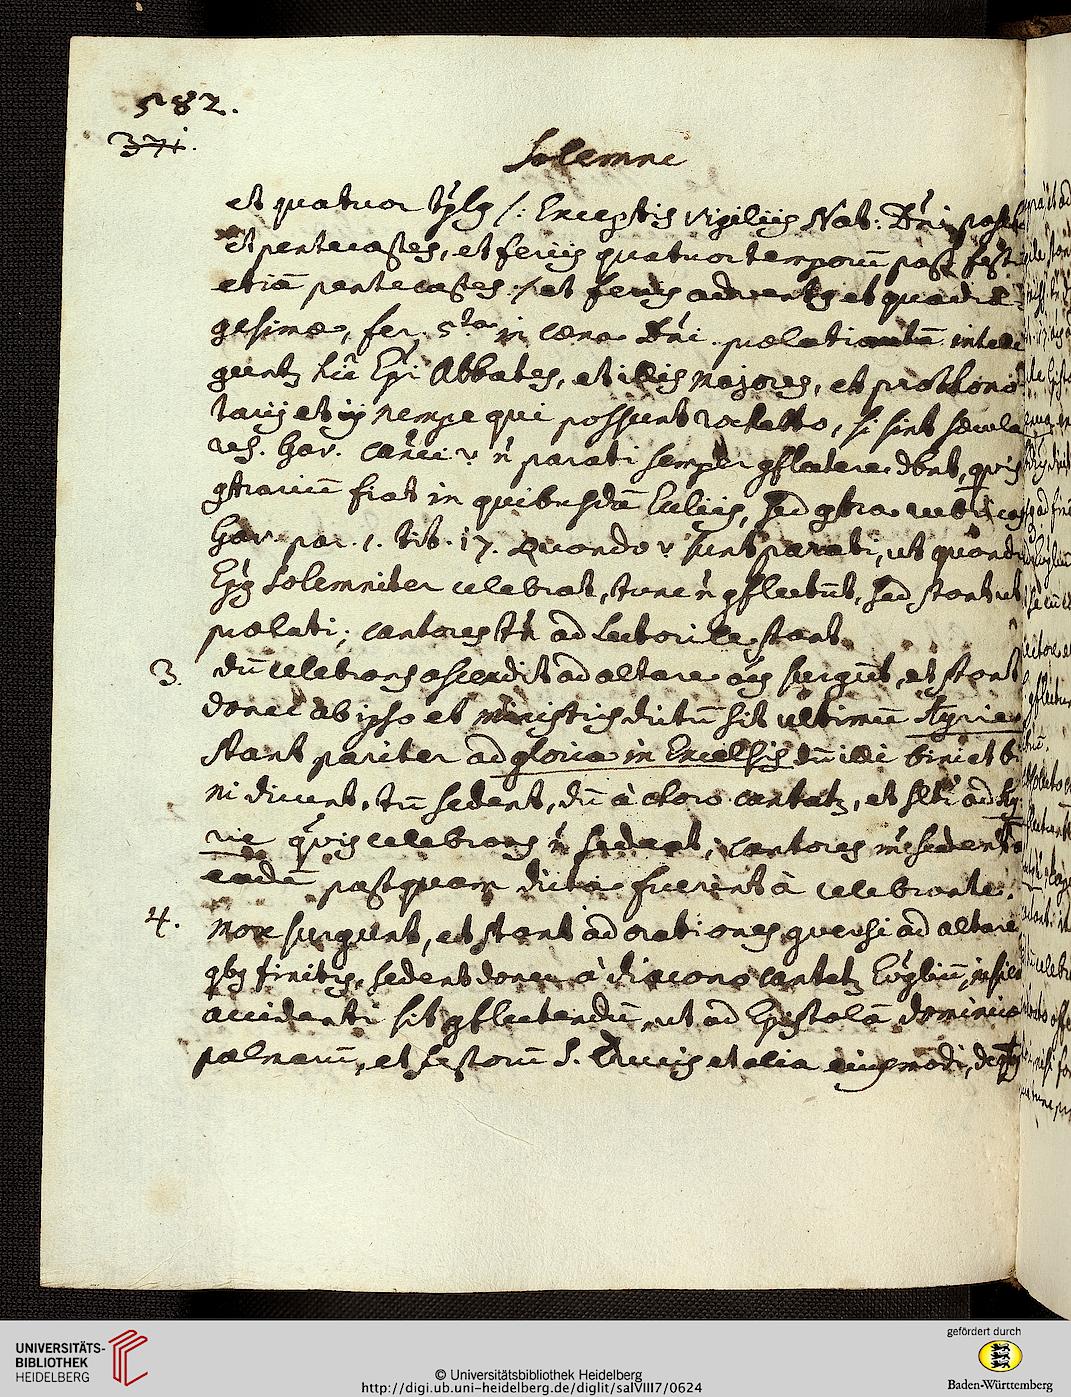 582.
371.
Solemne
et quatuor tp̄lz /: Exceptis vigilijs Nat: Dn̄i, pasch
et pentecostes, et ferijs quatuor temporū post fest
etiā pentecostes :/ et ferijs adventus et quadra-
gesimæ, fer. 5ta in cœna Dn̄i. prælati intelli
guntz hic Ep̄i Abbates, et illis majores, et prothono
tarij et ij nempe qui possunt rochetto, si sint sæcula
res. Gav. parati semper gflectere dbnt, qvis
gtrariū fiat in quibusdā Ecclijs, sed gtra rubricas
Gav. par. 1. tit. 17. Quando v sunt parati, ut quando
Ep̄g solemniter celebrat, tunc n̄ gflectūt, sed stant ut
prælati; cantores tn̄ ad Lectorile stant
3. dū celebrans ascendit ad altare oēs surgūt, et stant
donec ab ipso et ministris dictū sit ultimū Kyrie
stant pariter ad gloria in Excelsis dū illi bini et bi
ni dicunt, tū sedent, dū à choro cantatz, et ad Ky
rie qvis celebrans n̄ sedeat; cantores sedent
eadē postquam dicta fuerint à celebrante.
4. Mox surgunt, et stant ad orationes gversi ad altare
qbg finitis, sedent donec à diacono cantetz Evgliū, nisi ex
accidenti sit gflectendū, ut ad Epistolā dominicæ
palmarū, et festorū S. Crucis et alia ejusmodi, de
UNIVERSITÄTS-
BIBLIOTHEK
HEIDELBERG
© Universitätsbibliothek Heidelberg
http://digi.ub.uni-heidelberg.de/diglit/salVIII7/0624
gefördert durch
Baden-Württemberg